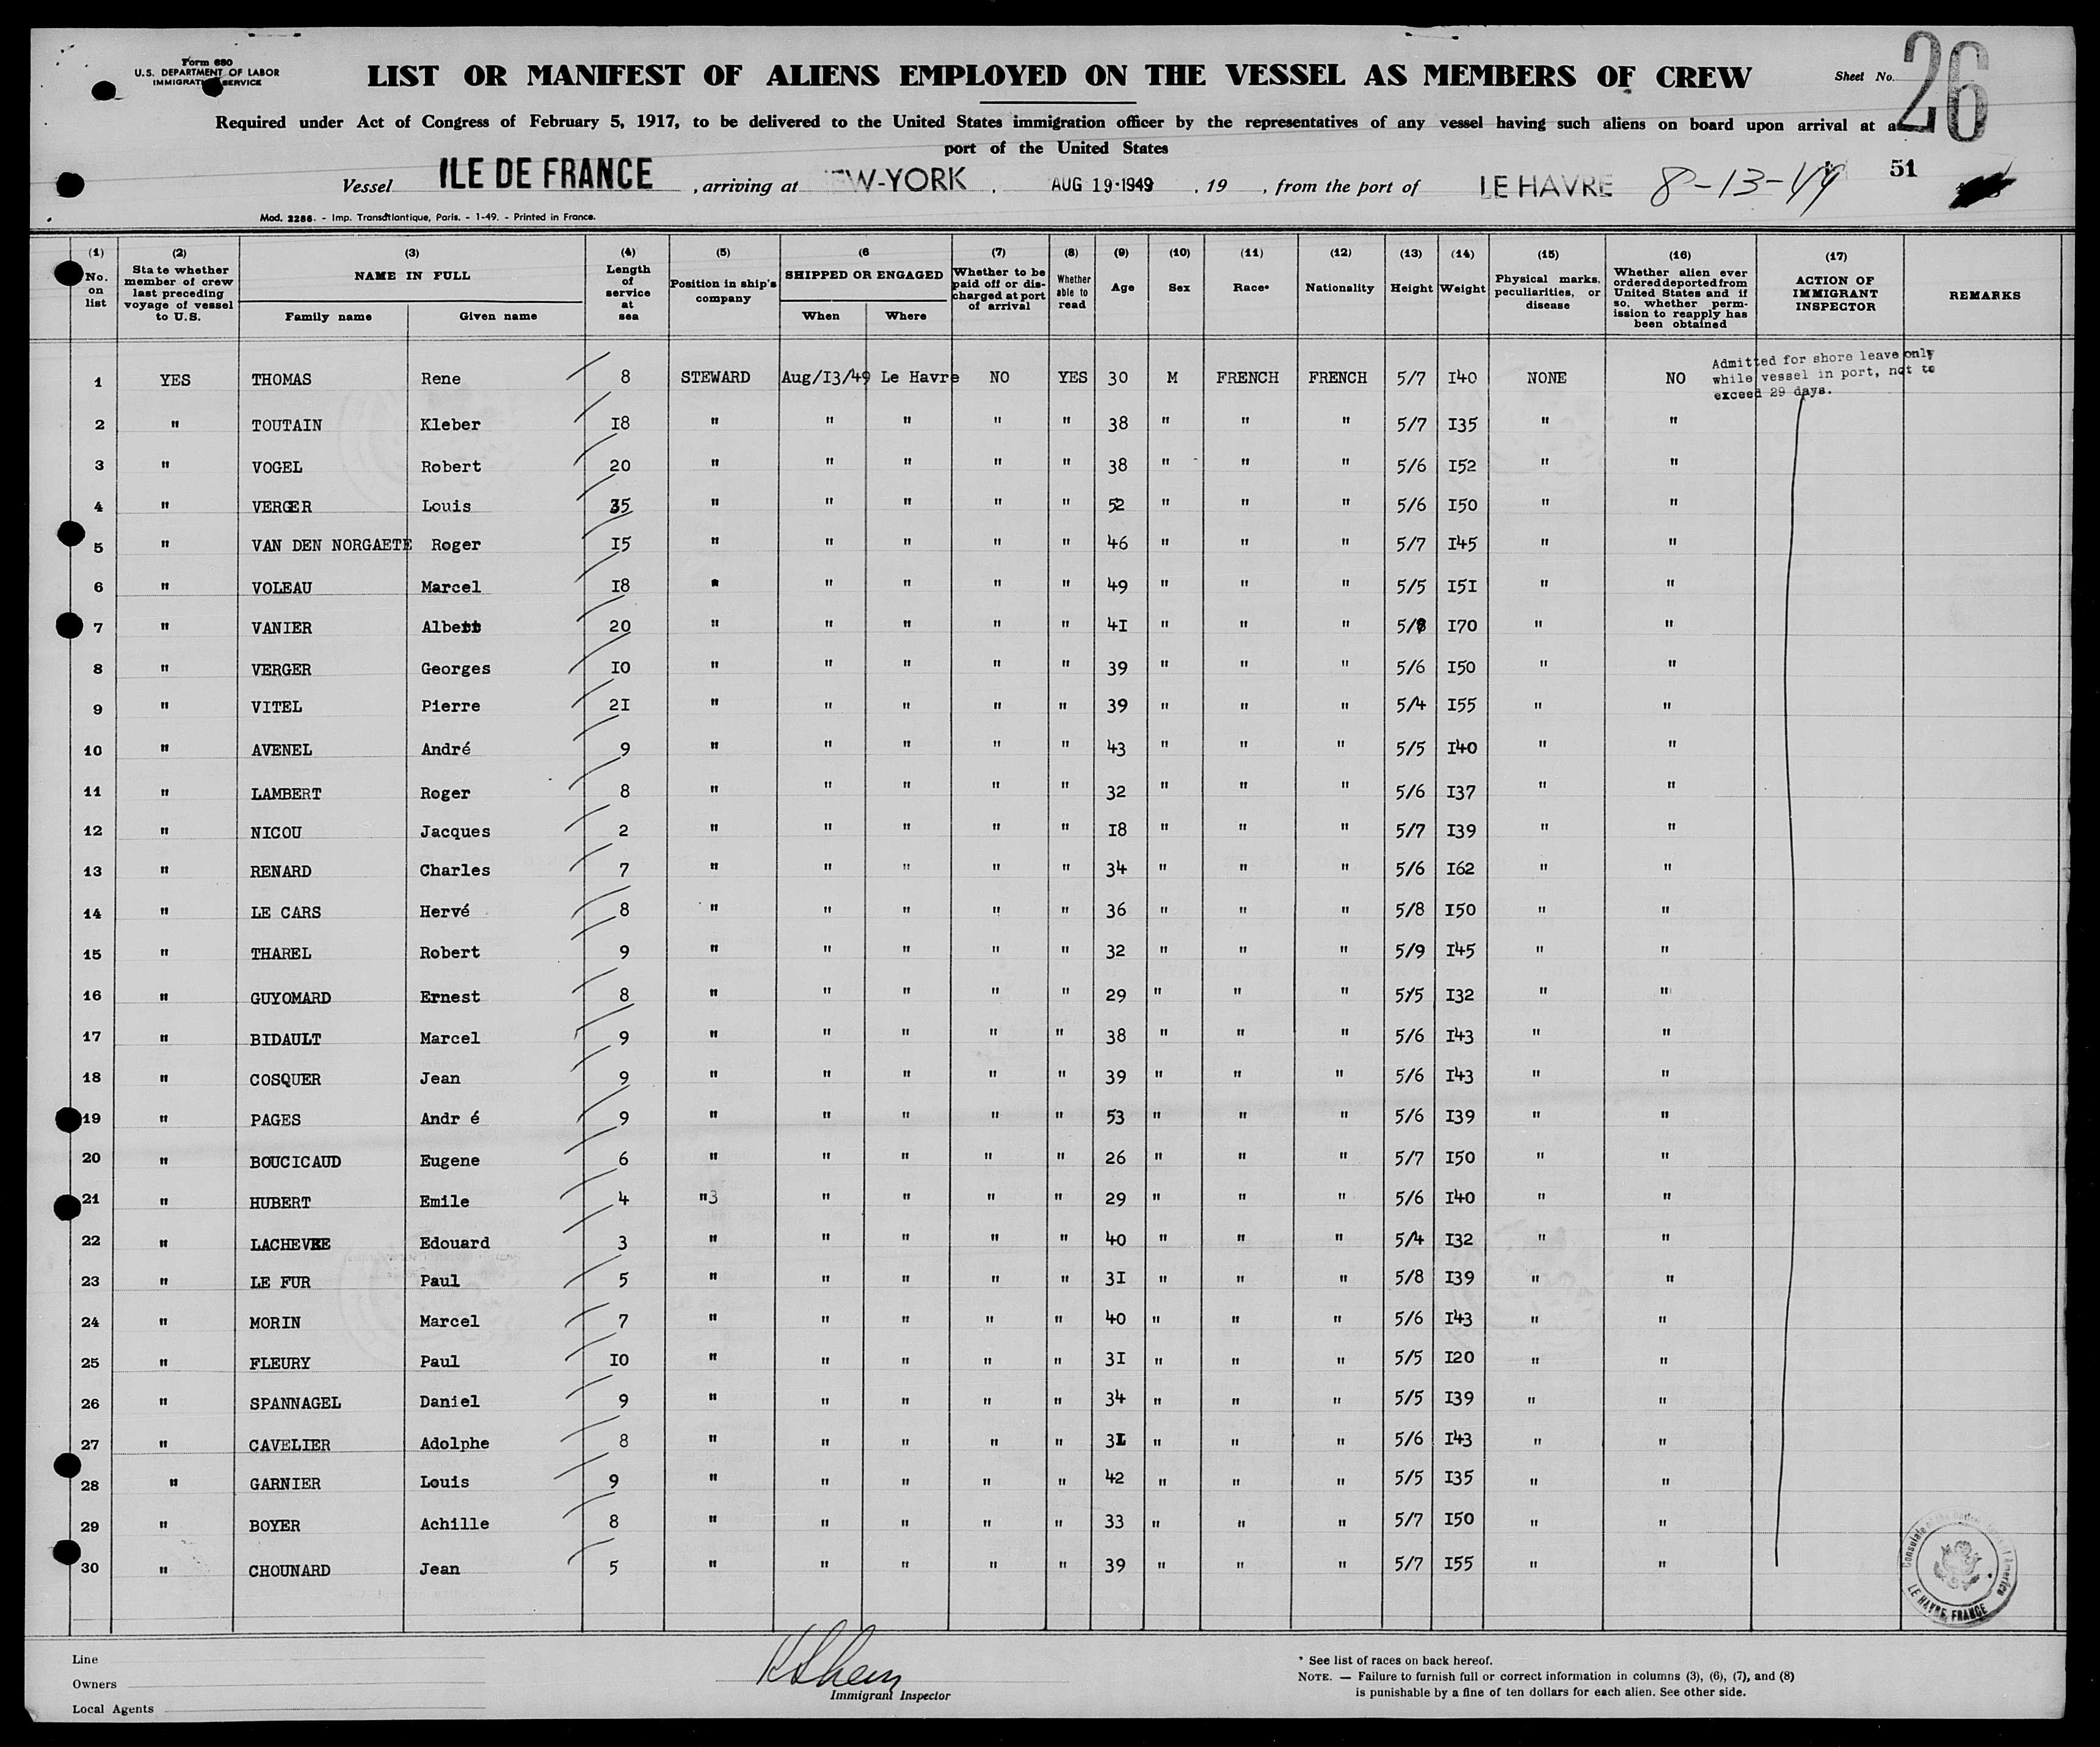 Form 680
U.S. DEPARTMENT OF LABOR
IMMIGRATION SERVICE
LIST OR MANIFEST OF ALIENS EMPLOYED ON THE VESSEL AS MEMBERS OF CREW
Sheet No. 26
Required under Act of Congress of February 5, 1917, to be delivered to the United States immigration officer by the representatives of any vessel having such aliens on board upon arrival at a
port of the United States
Vessel ILE DE FRANCE , arriving at EW-YORK , AUG 19·1949 , 19 , from the port of LE HAVRE 8-13-49 51
Mod. 2286. - Imp. Transatlantique, Paris. - 1-49. - Printed in France.
(1) No. on list (2) State whether member of crew last preceding voyage of vessel to U.S. (3) NAME IN FULL Family name Given name (4) Length of service at sea (5) Position in ship's company (6 SHIPPED OR ENGAGED When Where (7) Whether to be paid off or discharged at port of arrival (8) Whether able to read (9) Age (10) Sex (11) Race* (12) Nationality (13) Height (14) Weight (15) Physical marks, peculiarities, or disease (16) Whether alien ever ordered deported from United States and if so, whether permission to reapply has been obtained (17) ACTION OF IMMIGRANT INSPECTOR REMARKS
Admitted for shore leave only
while vessel in port, not to
exceed 29 days.
1 YES THOMAS Rene 8 STEWARD Aug/I3/49 Le Havre NO YES 30 M FRENCH FRENCH 5/7 I40 NONE NO
2 " TOUTAIN Kleber I8 " " " " " 38 " " " 5/7 I35 " "
3 " VOGEL Robert 20 " " " " " 38 " " " 5/6 I52 " "
4 " VERGER Louis 35 " " " " " 52 " " " 5/6 I50 " "
5 " VAN DEN NORGAETE Roger I5 " " " " " 46 " " " 5/7 I45 " "
6 " VOLEAU Marcel I8 " " " " " 49 " " " 5/5 I5I " "
7 " VANIER Albert 20 " " " " " 4I " " " 5/8 I70 " "
8 " VERGER Georges IO " " " " " 39 " " " 5/6 I50 " "
9 " VITEL Pierre 2I " " " " " 39 " " " 5/4 I55 " "
10 " AVENEL André 9 " " " " " 43 " " " 5/5 I40 " "
11 " LAMBERT Roger 8 " " " " " 32 " " " 5/6 I37 " "
12 " NICOU Jacques 2 " " " " " I8 " " " 5/7 I39 " "
13 " RENARD Charles 7 " " " " " 34 " " " 5/6 I62 " "
14 " LE CARS Hervé 8 " " " " " 36 " " " 5/8 I50 " "
15 " THAREL Robert 9 " " " " " 32 " " " 5/9 I45 " "
16 " GUYOMARD Ernest 8 " " " " " 29 " " " 5/5 I32 " "
17 " BIDAULT Marcel 9 " " " " " 38 " " " 5/6 I43 " "
18 " COSQUER Jean 9 " " " " " 39 " " " 5/6 I43 " "
19 " PAGES Andr é 9 " " " " " 53 " " " 5/6 I39 " "
20 " BOUCICAUD Eugene 6 " " " " " 26 " " " 5/7 I50 " "
21 " HUBERT Emile 4 "3 " " " " 29 " " " 5/6 I40 " "
22 " LACHEVRE Edouard 3 " " " " " 40 " " " 5/4 I32 " "
23 " LE FUR Paul 5 " " " " " 3I " " " 5/8 I39 " "
24 " MORIN Marcel 7 " " " " " 40 " " " 5/6 I43 " "
25 " FLEURY Paul IO " " " " " 3I " " " 5/5 I20 " "
26 " SPANNAGEL Daniel 9 " " " " " 34 " " " 5/5 I39 " "
27 " CAVELIER Adolphe 8 " " " " " 3I " " " 5/6 I43 " "
28 " GARNIER Louis 9 " " " " " 42 " " " 5/5 I35 " "
29 " BOYER Achille 8 " " " " " 33 " " " 5/7 I50 " "
30 " CHOUNARD Jean 5 " " " " " 39 " " " 5/7 I55 " "
Consulate of the United States of America
LE HAVRE, FRANCE
Line
Owners
Local Agents
Immigrant Inspector
* See list of races on back hereof.
NOTE. — Failure to furnish full or correct information in columns (3), (6), (7), and (8)
is punishable by a fine of ten dollars for each alien. See other side.